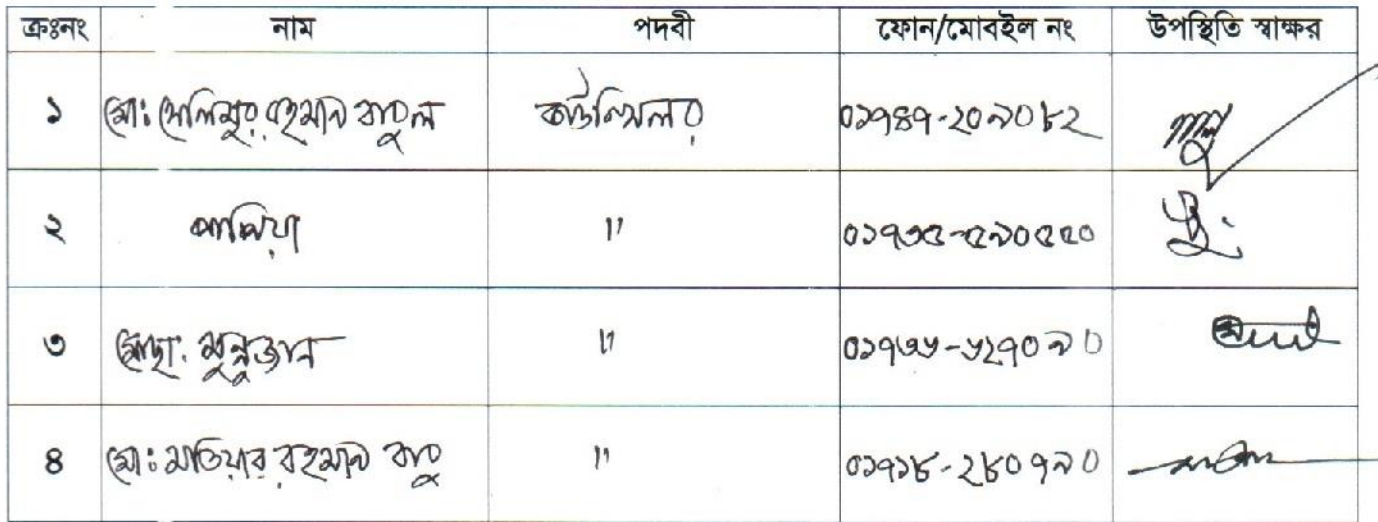 ক্রঃনং নাম পদবী ফোন/মোবইল নং উপস্থিতি স্বাক্ষর
১ মোঃ সেলিমুর রহমান বাবুল কাউন্সিলর ০১৭৪৭-২০৯০৮২
২ " ০১৭৩৫-৫৯০৫৫০
৩ মোছা: মুন্নুজান " ০১৭৩৬-৬২৭০৯০
৪ মোঃ মতিয়ার রহমান বাবু " ০১৭১৮-২৮০৭৯০